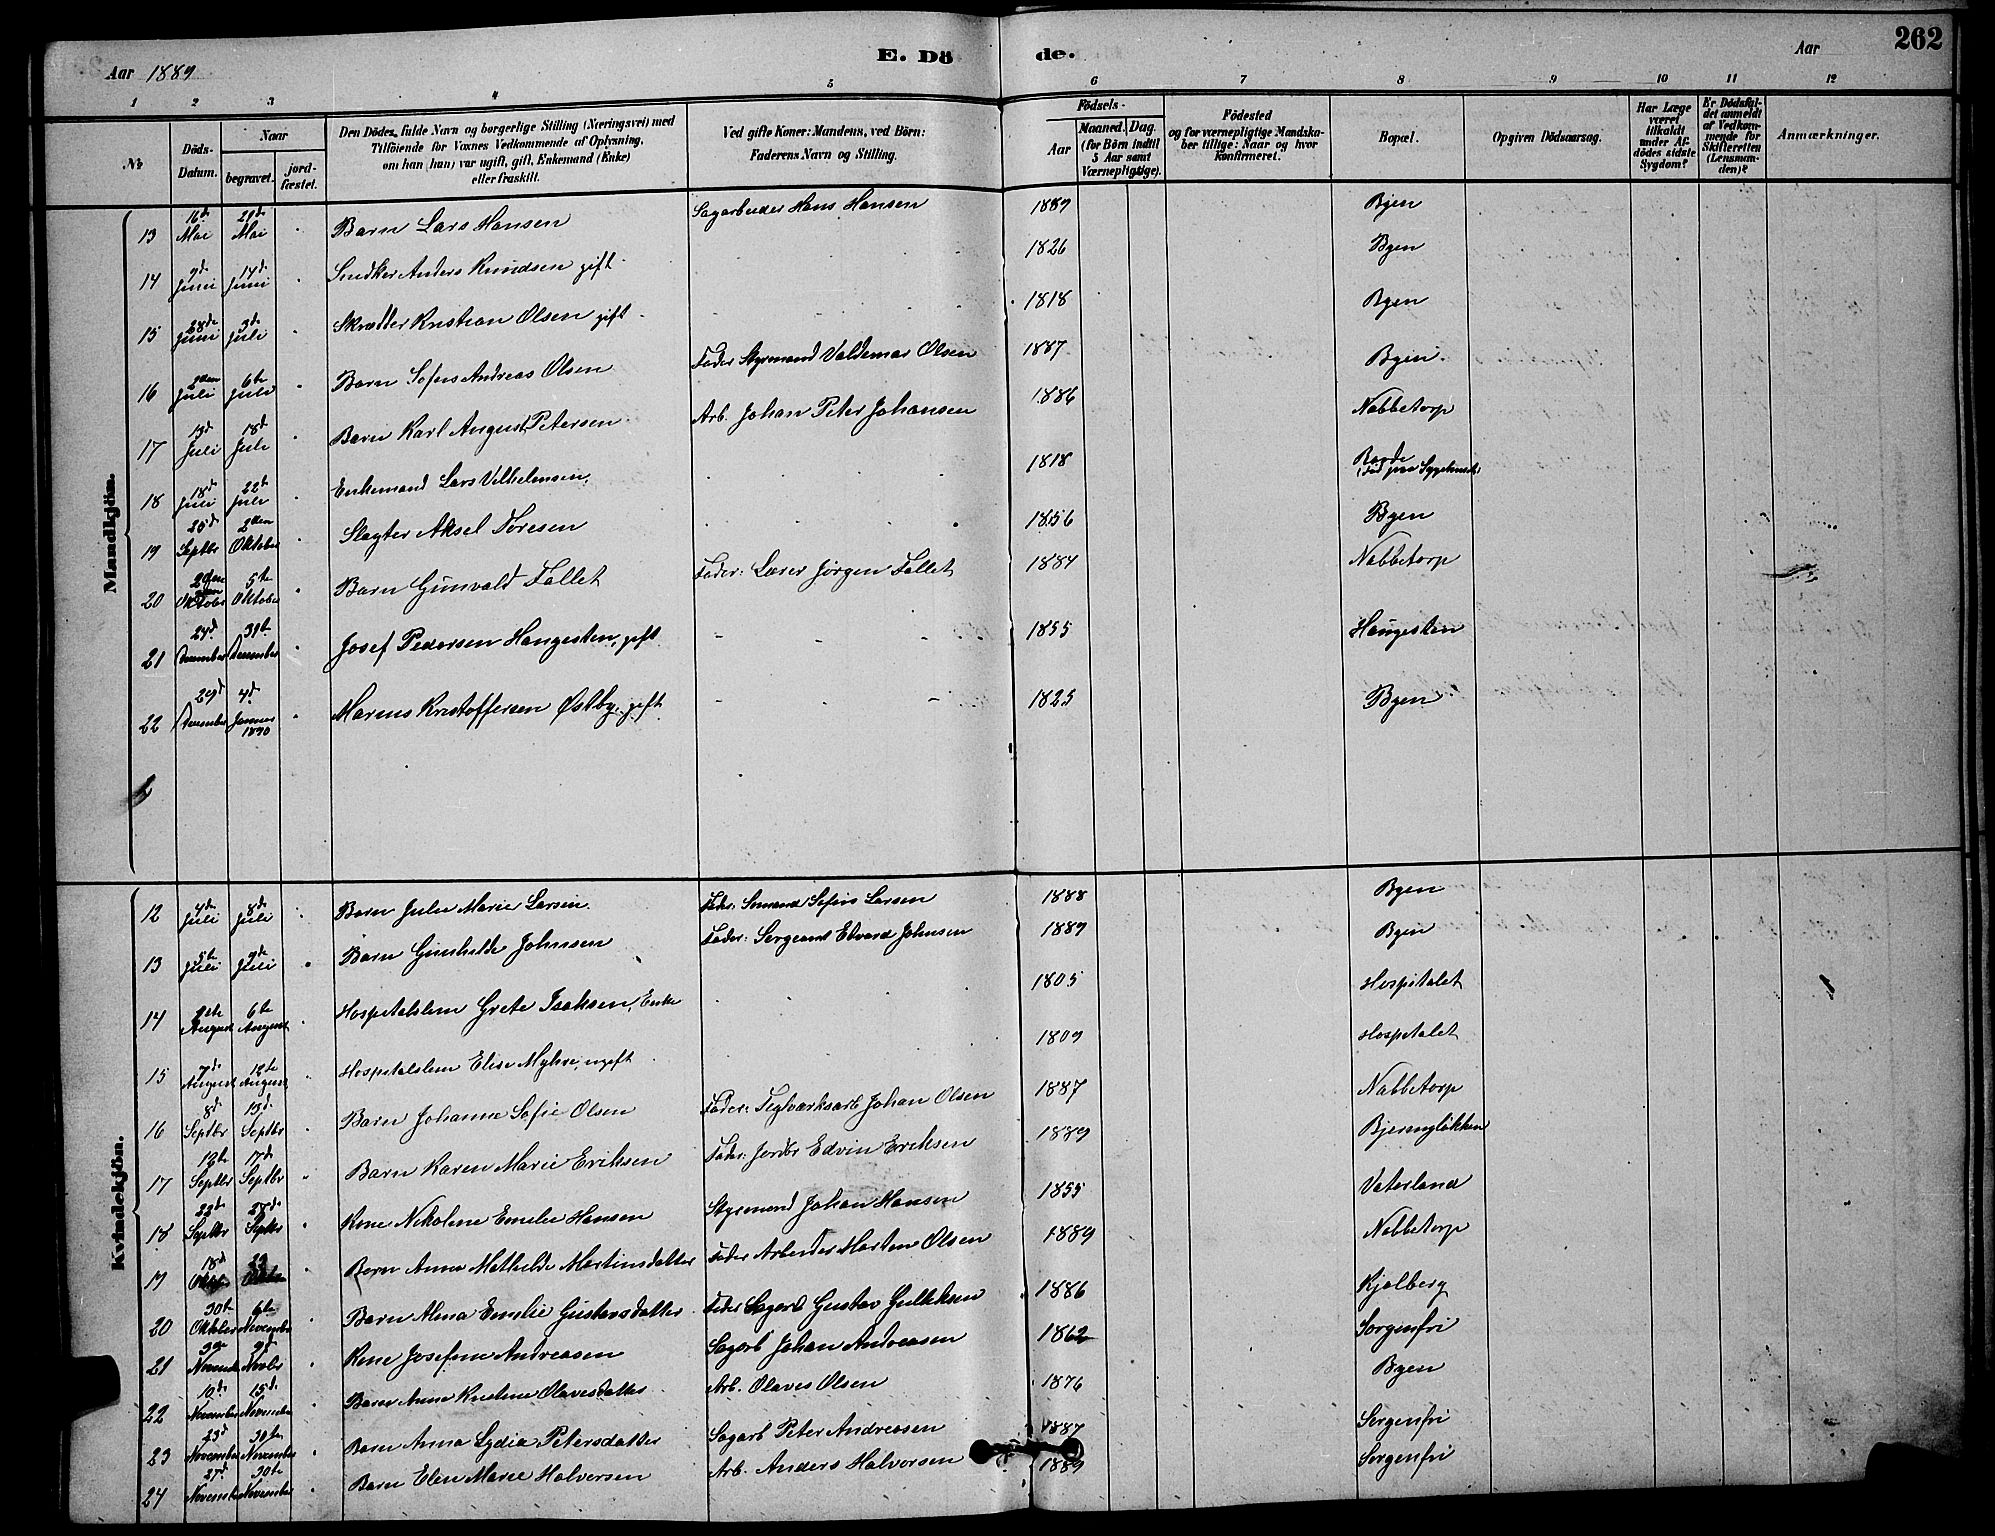 Aar 1889
E. Dö
de.
Aar
262
1 2 3 4 5 6 7 8 9 10 11 12
No
Döds-Datum.
Naar
begravet.
jord-fæstet.
Den Dödes fulde Navn og borgerlige Stilling (Næringsvei) med
Tilföiende for Voxnes Vedkommende af Oplysning,
om han (hun) var ugift, gift, Enkemand (Enke)
eller fraskilt.
Ved gifte Koner: Mandens, ved Börn:
Faderens Navn og Stilling.
Födsels-
Aar
Maaned. Dag.
(for Börn indtil
5 Aar samt
Værnepligtige).
Födested
og for værnepligtige Mandska-
ber tillige: Naar og hvor
Konfirmeret.
Bopæl.
Opgiven Dödsaarsag.
Har Læge
været
tilkaldt
under Af-
dödes sidste
Sygdom?
Er Dödsfal-
det anmeldt
af Vedkom-
mende for
Skifteretten
(Lensman-
den)?
Anmærkninger.
Mandkjön.
13 16de Mai 29de Mai Barn Lars Hansen Sagarbeider Hans Hansen 1889 Byen
14 9d Juni 14d Juni Snedker Anders Knudsen gift 1826 Byen
15 28de Juni 3de Juli Skrædder Kristian Olsen gift 1818 Byen
16 2den Juli 6te Juli Barn Sofus Andreas Olsen Fader Styrmand Valdemar Olsen 1887 Byen
17 13d Juli 18d Juli Barn Karl August Petersen Arb. Johan Peter Johansen 1886 Nabbetorp
18 18d Juli 22d Juli Enkemand Lars Vilhelmsen 1818
19 25d Septbr 2den Oktober Slagter Aksel Toresen 1856 Byen
20 Oktober 5te Oktober Barn Gunvald Fallet Fader: Lærer Jørgen Fallet 1884 Nabbetorp
21 24d December 31te December Josef Pedersen Haugesten, gift 1855 Haugesten
22 29d December 4d Januar 1890 Marius Kristoffersen Østby, gift 1825 Byen
Kvindekjön.
12 4de Juli 8de Juli Barn Julie Marie Larsen Fader: Sømand Sofus Larsen 1888 Byen
13 5te Juli 9de Juli Barn Gunhilde Johnsen Fader: Sergeant Edvard Johnsen 1889 Byen
14 August 6te August Hospitalslem Grete Isaksen, Enke 1805 Hospitalet
15 7d August 12te August Hospitalslem Elise Myhre, ugift 1809 Hospitalet
16 8d Septbr 13d Septbr Barn Johanne Sofie Olsen Fader: Teglværksarb Johan Olsen 1887 Nabbetorp
17 12te Septbr 17d Septbr Barn Karen Marie Eriksen Fader: Jordbr Edvin Eriksen 1889 Bjerngløkken
18 22de Septbr 27de Septbr Kone Nikoline Emilie Hansen Styrmand Johan Hansen 1855 Vaterland
19 18d 23 Barn Anna Mathilde Martinsdatter Fader Arbeider Morten Olsen 1889 Nabbetorp
20 30te Oktober 6te November Barn Alma Emilie Gustavsdatter Fader Sagarb Gustav Gulliksen 1886 Kjølberg
21 Novbr Kone Josefine Andreasen Sagarb Johan Andreasen 1862 Sorgenfri
22 10de November 15d November Barn Anna Kristine Olavesdatter Arb. Olaves Olsen 1876 Byen
23 23d November 30te November Barn Anna Lydia Petersdatter Sagarb Peter Andreasen 1887 Sorgenfri
24 27d November 30te November Barn Elen Marie Halvorsen Arb. Anders Halvorsen 1889 Sorgenfri